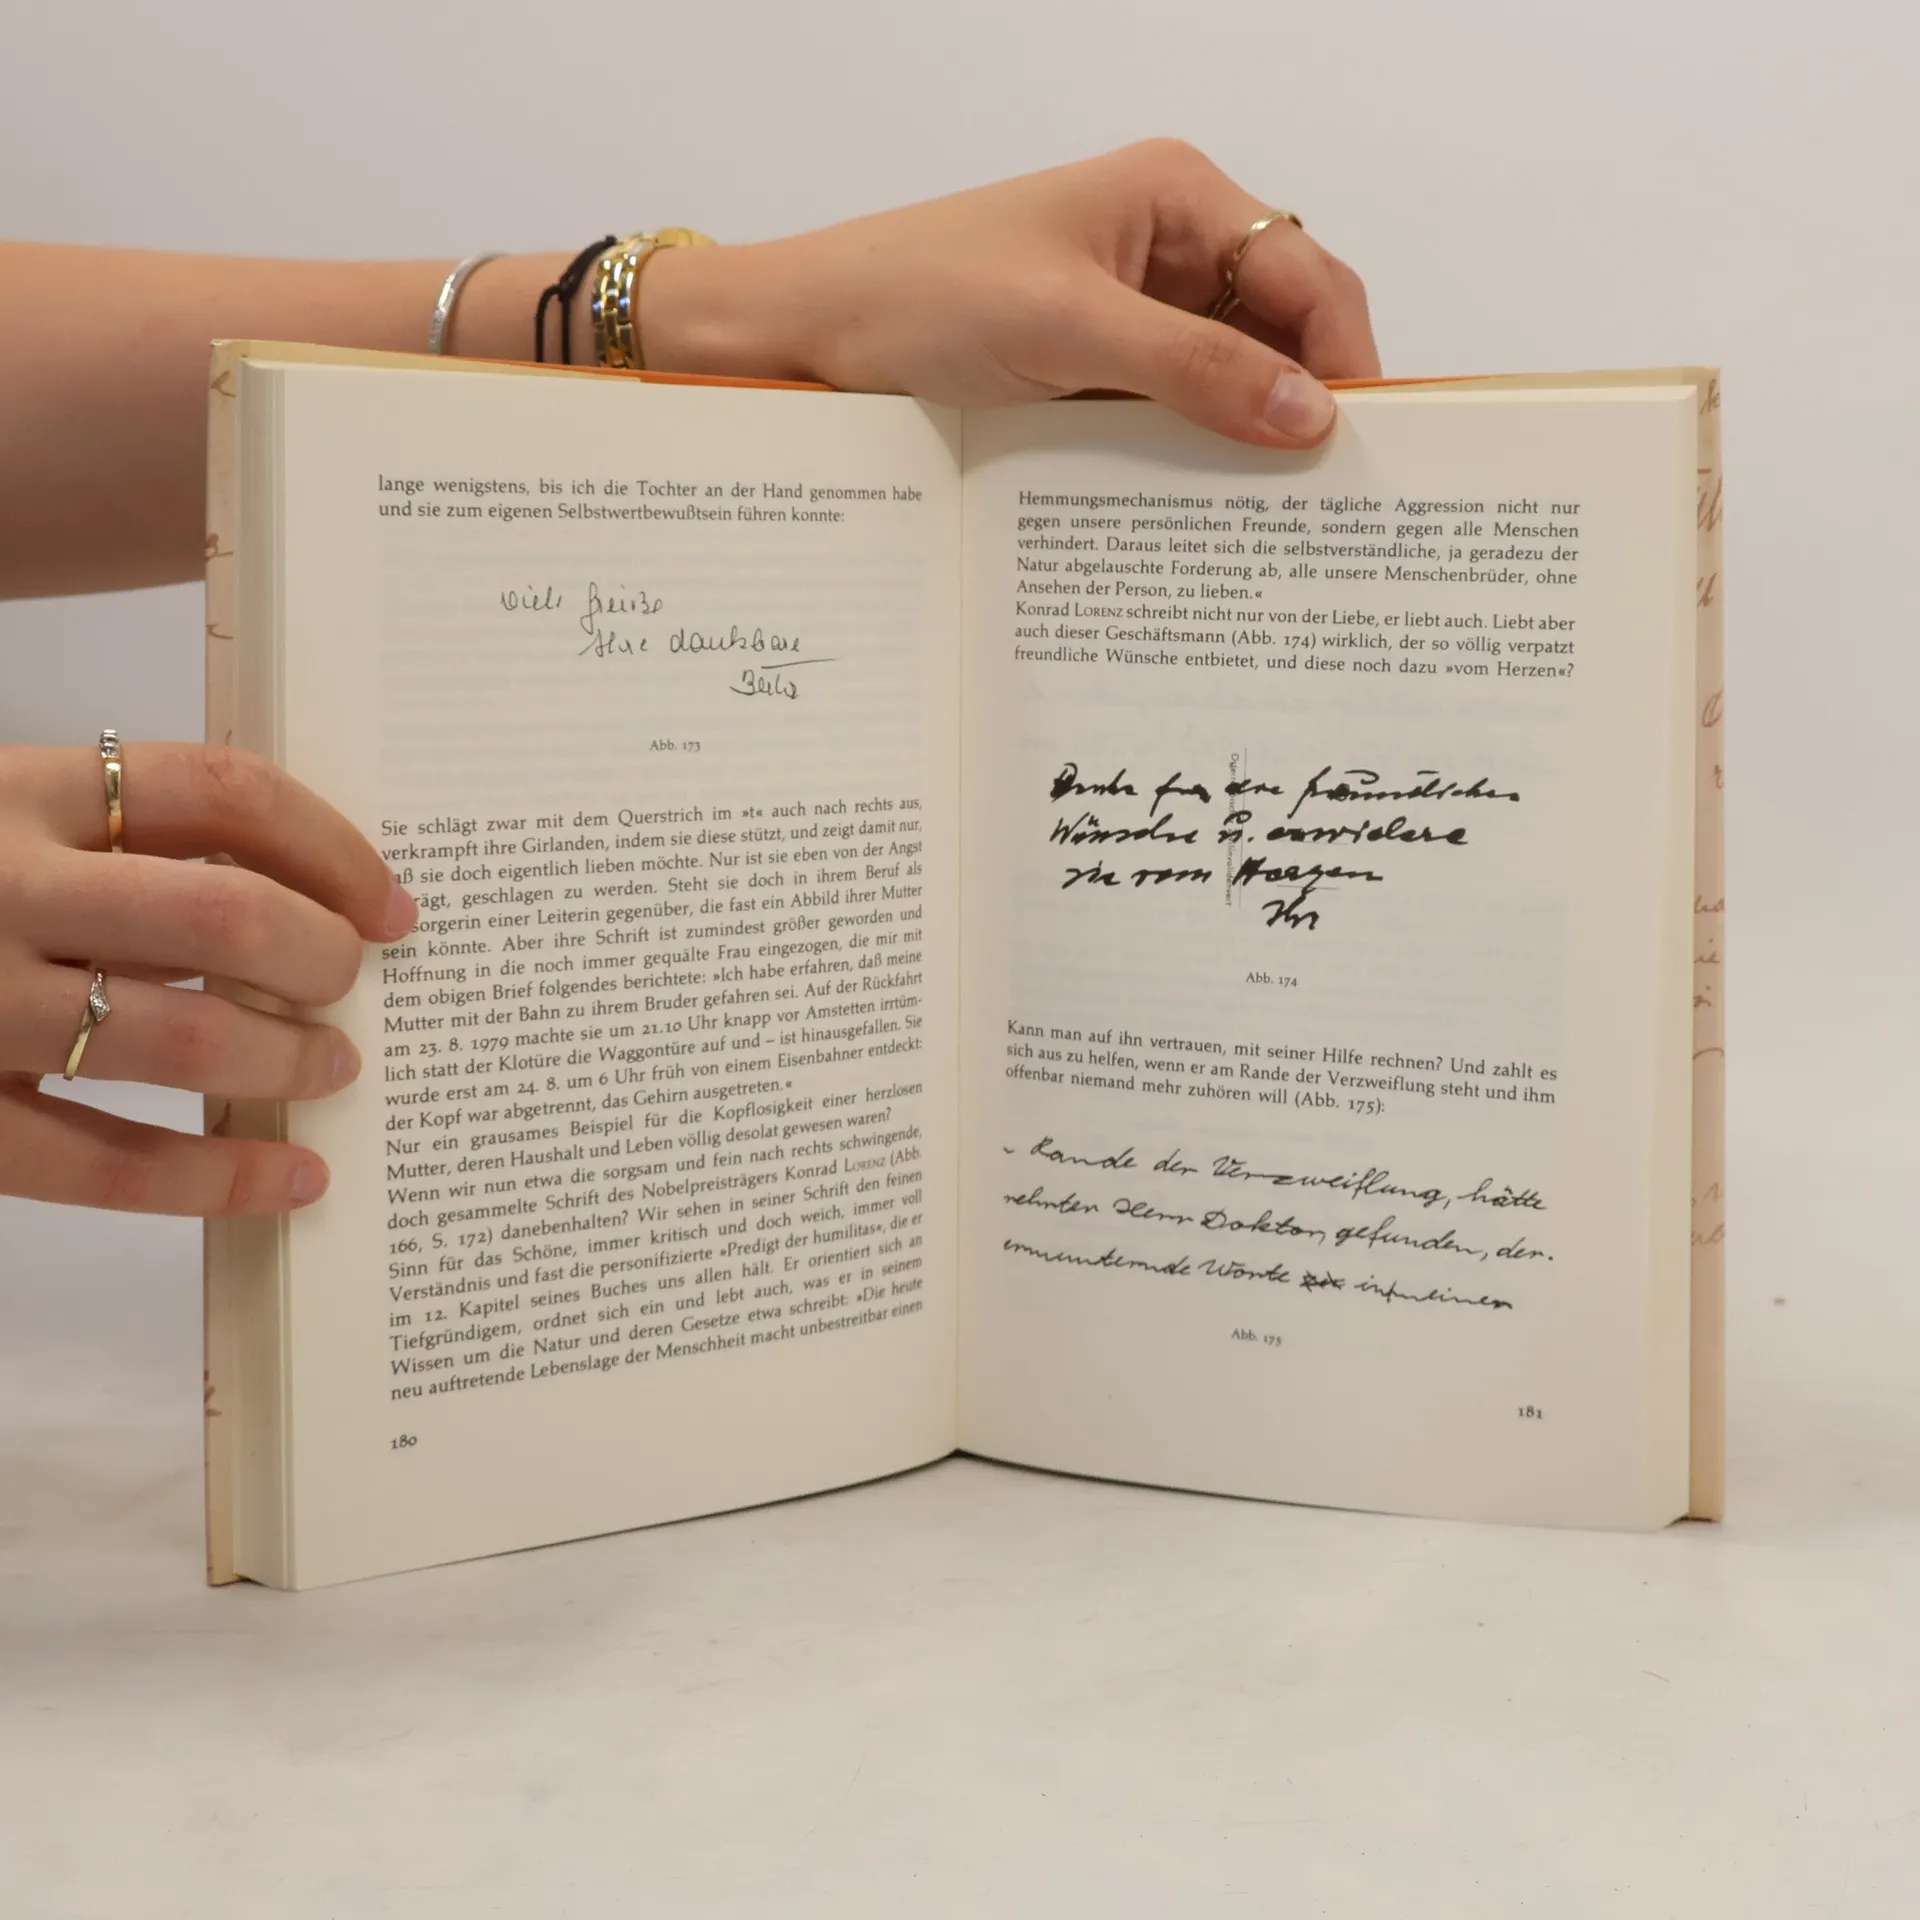 lange wenigstens, bis ich die Tochter an der Hand genommen habe
und sie zum eigenen Selbstwertbewußtsein führen konnte:
viele Grüße
Ihre dankbare
Abb. 173
Sie schlägt zwar mit dem Querstrich im »t« auch nach rechts aus,
verkrampft ihre Girlanden, indem sie diese stützt, und zeigt damit nur,
aß sie doch eigentlich lieben möchte. Nur ist sie eben von der Angst
rägt, geschlagen zu werden. Steht sie doch in ihrem Beruf als
sorgerin einer Leiterin gegenüber, die fast ein Abbild ihrer Mutter
sein könnte. Aber ihre Schrift ist zumindest größer geworden und
Hoffnung in die noch immer gequälte Frau eingezogen, die mir mit
dem obigen Brief folgendes berichtete: »Ich habe erfahren, daß meine
Mutter mit der Bahn zu ihrem Bruder gefahren sei. Auf der Rückfahrt
am 23. 8. 1979 machte sie um 21.10 Uhr knapp vor Amstetten irrtüm-
lich statt der Klotüre die Waggontüre auf und – ist hinausgefallen. Sie
wurde erst am 24. 8. um 6 Uhr früh von einem Eisenbahner entdeckt:
der Kopf war abgetrennt, das Gehirn ausgetreten.«
Nur ein grausames Beispiel für die Kopflosigkeit einer herzlosen
Mutter, deren Haushalt und Leben völlig desolat gewesen waren?
Wenn wir nun etwa die sorgsam und fein nach rechts schwingende,
doch gesammelte Schrift des Nobelpreisträgers Konrad LORENZ (Abb.
166, S. 172) danebenhalten? Wir sehen in seiner Schrift den feinen
Sinn für das Schöne, immer kritisch und doch weich, immer voll
Verständnis und fast die personifizierte »Predigt der humilitas«, die er
im 12. Kapitel seines Buches uns allen hält. Er orientiert sich an
Tiefgründigem, ordnet sich ein und lebt auch, was er in seinem
Wissen um die Natur und deren Gesetze etwa schreibt: »Die heute
neu auftretende Lebenslage der Menschheit macht unbestreitbar einen
180
Hemmungsmechanismus nötig, der tägliche Aggression nicht nur
gegen unsere persönlichen Freunde, sondern gegen alle Menschen
verhindert. Daraus leitet sich die selbstverständliche, ja geradezu der
Natur abgelauschte Forderung ab, alle unsere Menschenbrüder, ohne
Ansehen der Person, zu lieben.«
Konrad LORENZ schreibt nicht nur von der Liebe, er liebt auch. Liebt aber
auch dieser Geschäftsmann (Abb. 174) wirklich, der so völlig verpatzt
freundliche Wünsche entbietet, und diese noch dazu »vom Herzen«?
Danke für die freundlichen
Wünsche u. erwidere
sie vom Herzen
Ihr
Abb. 174
Kann man auf ihn vertrauen, mit seiner Hilfe rechnen? Und zahlt es
sich aus zu helfen, wenn er am Rande der Verzweiflung steht und ihm
offenbar niemand mehr zuhören will (Abb. 175):
Rande der Verzweiflung, hätte
rehrten Herr Doktor, gefunden, der
ermunternde Worte in meinen
Abb. 175
181